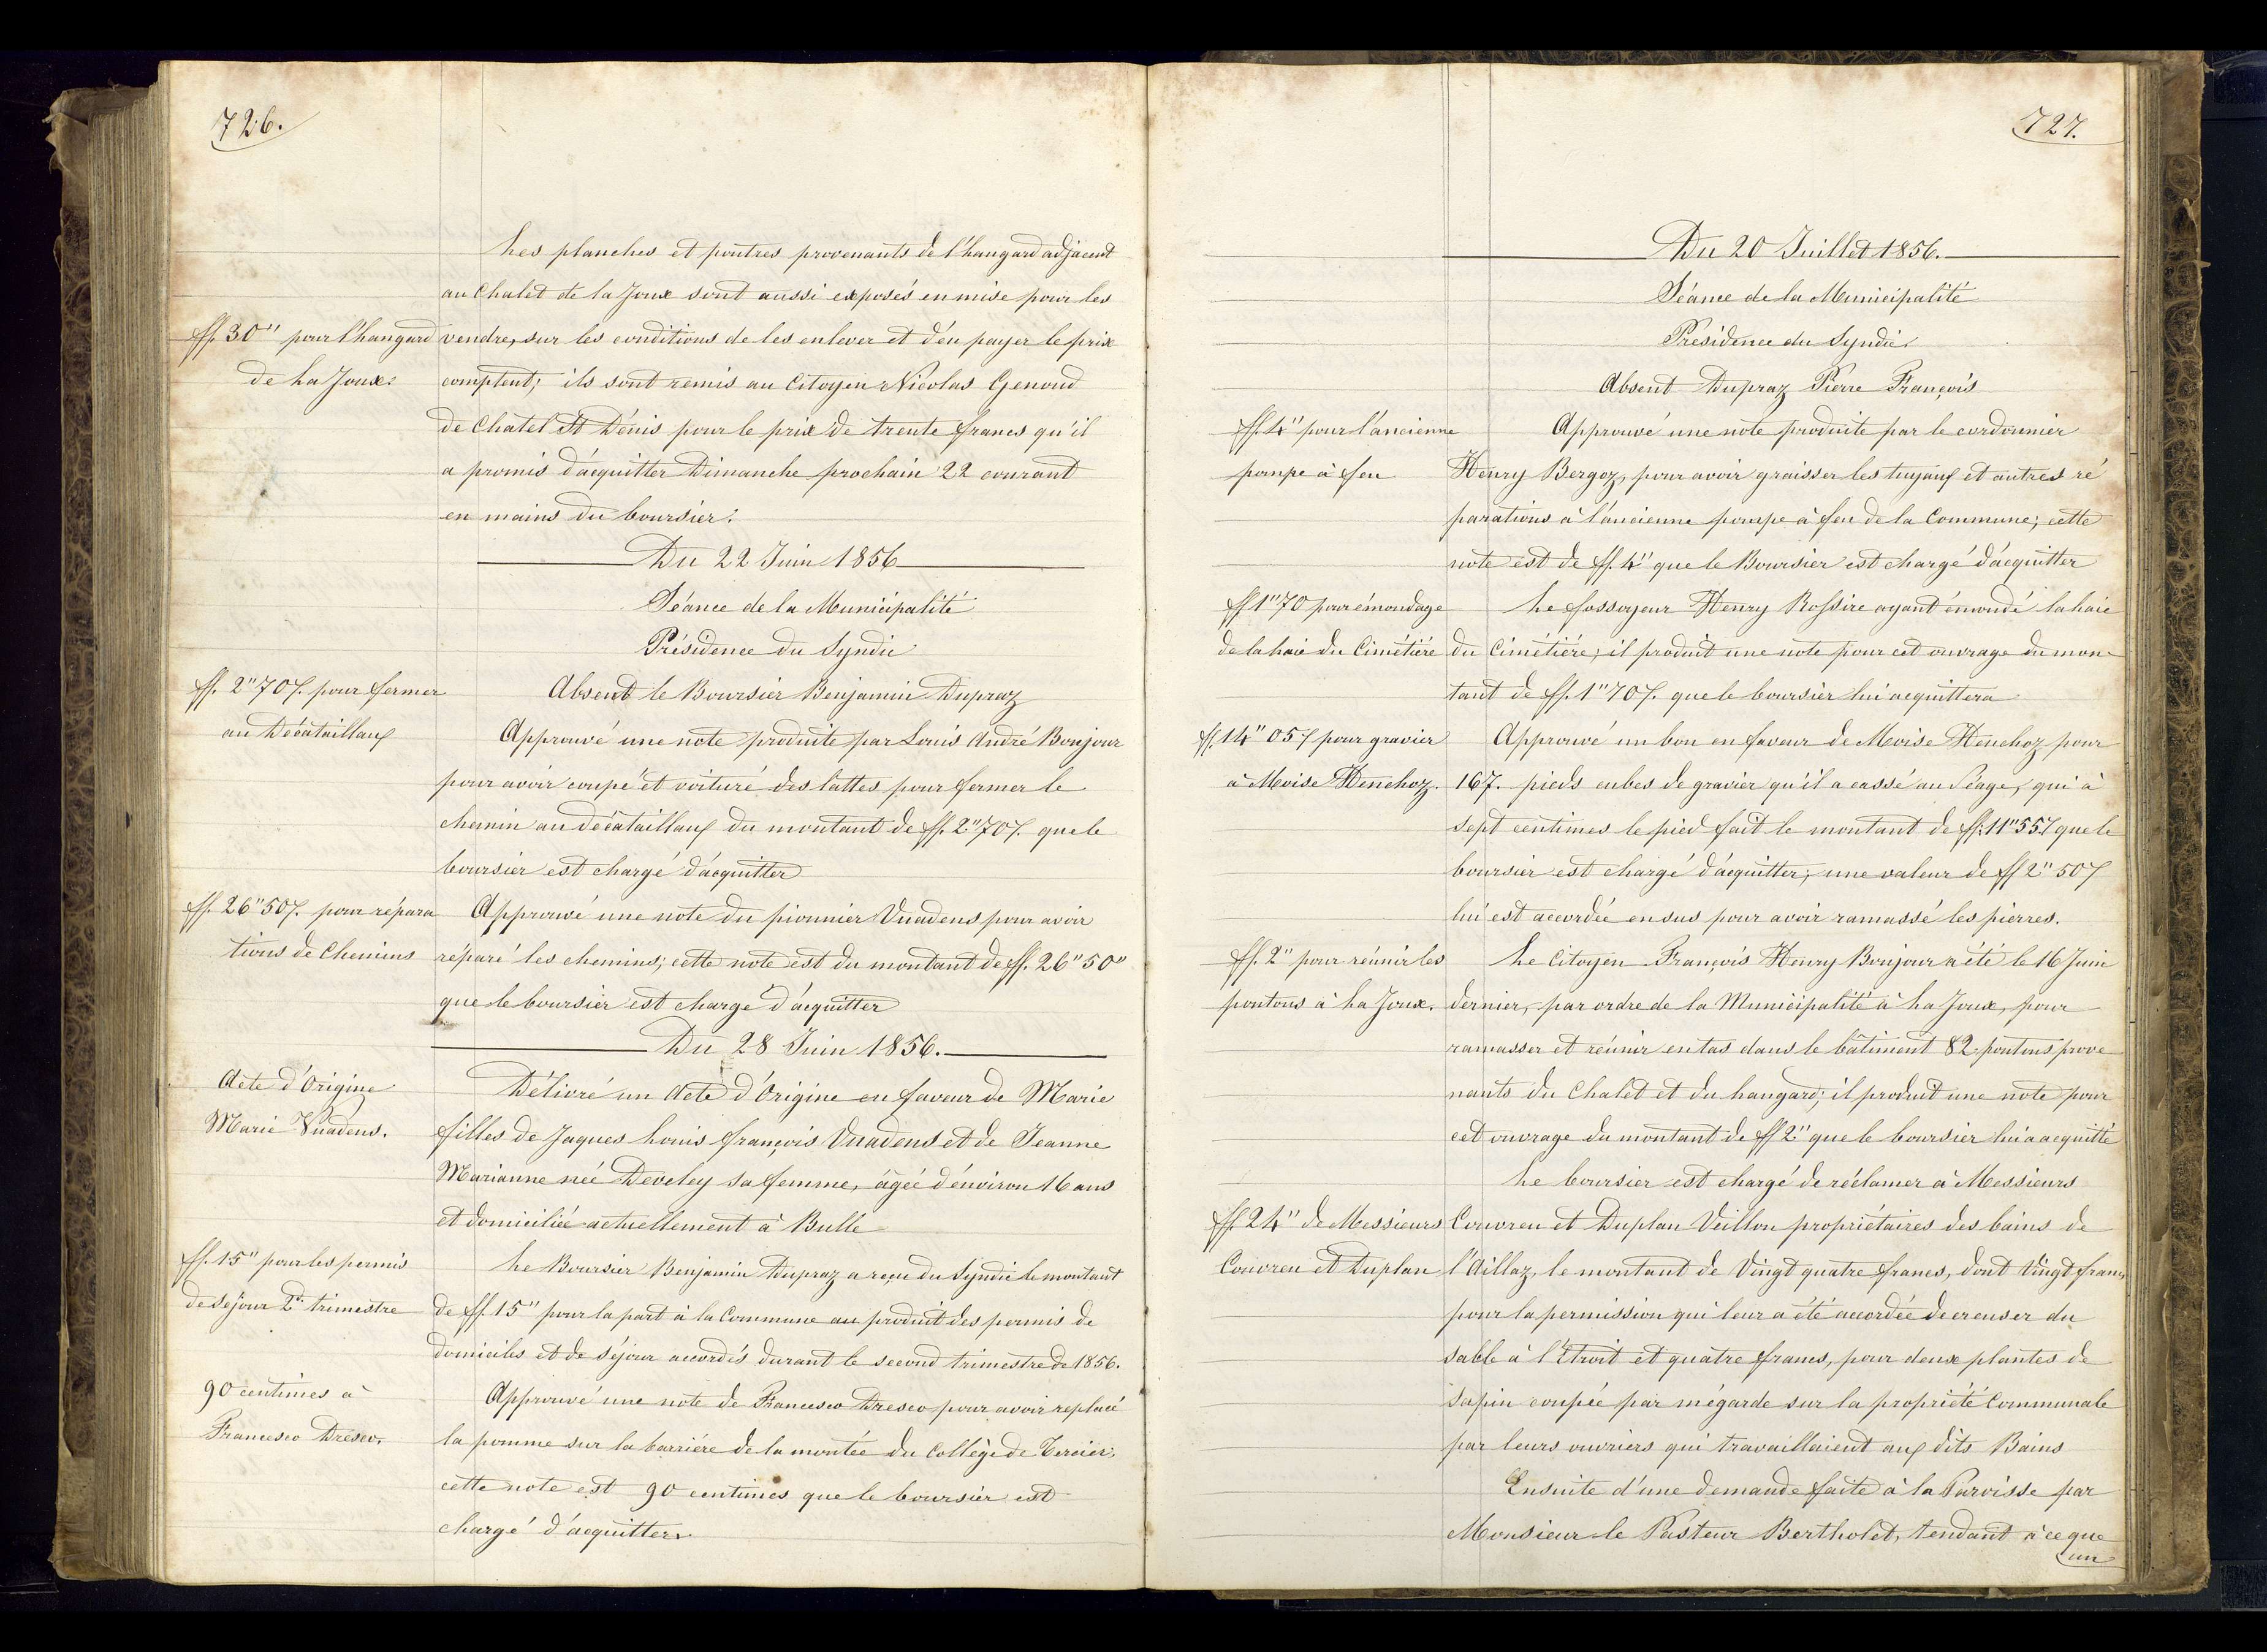 726.
Les planches et poutres provenants de l'hangard adjacent
au Chalet de la Joux sont aussi exposés en mise pour les
ff. 30" pour l'hangard
de La Joux.
vendre, sur les conditions de les enlever et d'en payer le prix
comptent; ils sont remis au Citoyen Nicolas Genoud
de Chatel St Dénis pour le prix de trente francs qu'il
a promis d'acquitter Dimanche prochain 22 courant
en mains du boursier.
Du 22 Juin 1856
Séance de la Municipalité
Présidence du Syndic
ff. 2"70 f. pour fermer
au Décätaillaux
Absent le Boursier Benjamin Dupraz
Approuvé une note produite par Louis André Bonjour
pour avoir coupé et voituré des lattes pour fermer le
chemin au décätaillaux du montant de ff. 2"70 f. que le
boursier est chargé d'acquitter
ff. 26"50 f. pour répara
tions de Chemins
Approuvé une note du pionnier Vuadens pour avoir
réparé les chemins; cette note est du montant de ff. 26"50"
que le boursier est chargé d'acquitter
Du 28 Juin 1856.
Acte d'Origine
Marie Vuadens.
Délivré un Acte d'Origine en faveur de Marie
filles de Jaques Louis françois Vuadens et de Jeanne
Marianne née Develey sa femme, âgée d'environ 16 ans
et domiciliée actuellement à Bulle
ff. 15" pour les permis
de séjour 2d. trimestre
Le Boursier Benjamin Dupraz a reçu du Syndic le montant
de ff. 15" pour la part à la Commune au produit des permis de
domiciles et de séjour accordés durant le second trimestre de 1856.
90 centimes à
Francesco Dresco.
Approuvé une note de Francesco Dresco pour avoir replacé
la pomme sur la barrière de la montée du Collège de Tercier;
cette note est 90 centimes que le boursier est
chargé d'acquitter.
727.
Du 20 Juillet 1856.
Séance de la Municipalité
Présidence du Syndic
Absent Dupraz Pierre François
ff. 4" pour l'ancienne
pompe à feu
Approuvé une note produite par le cordonnier
Henry Bergoz, pour avoir graisser les tuyaux et autres ré
parations à l'ancienne pompe à feu de la Commune; cette
note est de ff. 4" que le Boursier est chargé d'acquitter
ff 1"70 pour émondage
de la haie du Cimétière
Le fossoyeur Henry Rossire ayant émondé la haie
du Cimétière; il produit une note pour cet ouvrage du mon-
tant de ff. 1"70 f. que le boursier lui acquittera
ff. 14"05 f pour gravier
à Moise Henchoz.
Approuvé un bon en faveur de Moise Henchoz pour
167. pieds cubes de gravier qu'il a cassé au Péage, qui à
sept centimes le pied fait le montant de ff. 11"55 f que le
boursier est chargé d'acquitter; une valeur de ff 2"50 f
lui est accordée en sus pour avoir ramassé les pierres.
ff. 2" pour réunir les
pontons à La Joux.
Le Citoyen François Henry Bonjour a été le 16 Juin
dernier, par ordre de la Municipalité à La Joux, pour
ramasser et réunir en tas dans le bâtiment 82 pontons prove
nants du Chalet et du hangard; il produit une note pour
cet ouvrage du montant de ff 2" que le boursier lui a acquitté
Le boursier est chargé de réclamer à Messieurs
ff. 24" de Messieurs
Couvreu et Duplan
Couvreu et Duplan Veillon propriétaires des bains de
l'Aillaz, le montant de Vingt quatre francs, dont Vingt francs
pour la permission qui leur a été accordée de creuser du
sable à l'Etroit et quatre francs, pour deux plantes de
sapin coupée par mégarde sur la propriété Communale
par leurs ouvriers qui travaillaient aux dits Bains
Ensuite d'une demande faite à la Paroisse par
Monsieur le Pasteur Bertholet, tendant à ce que
un